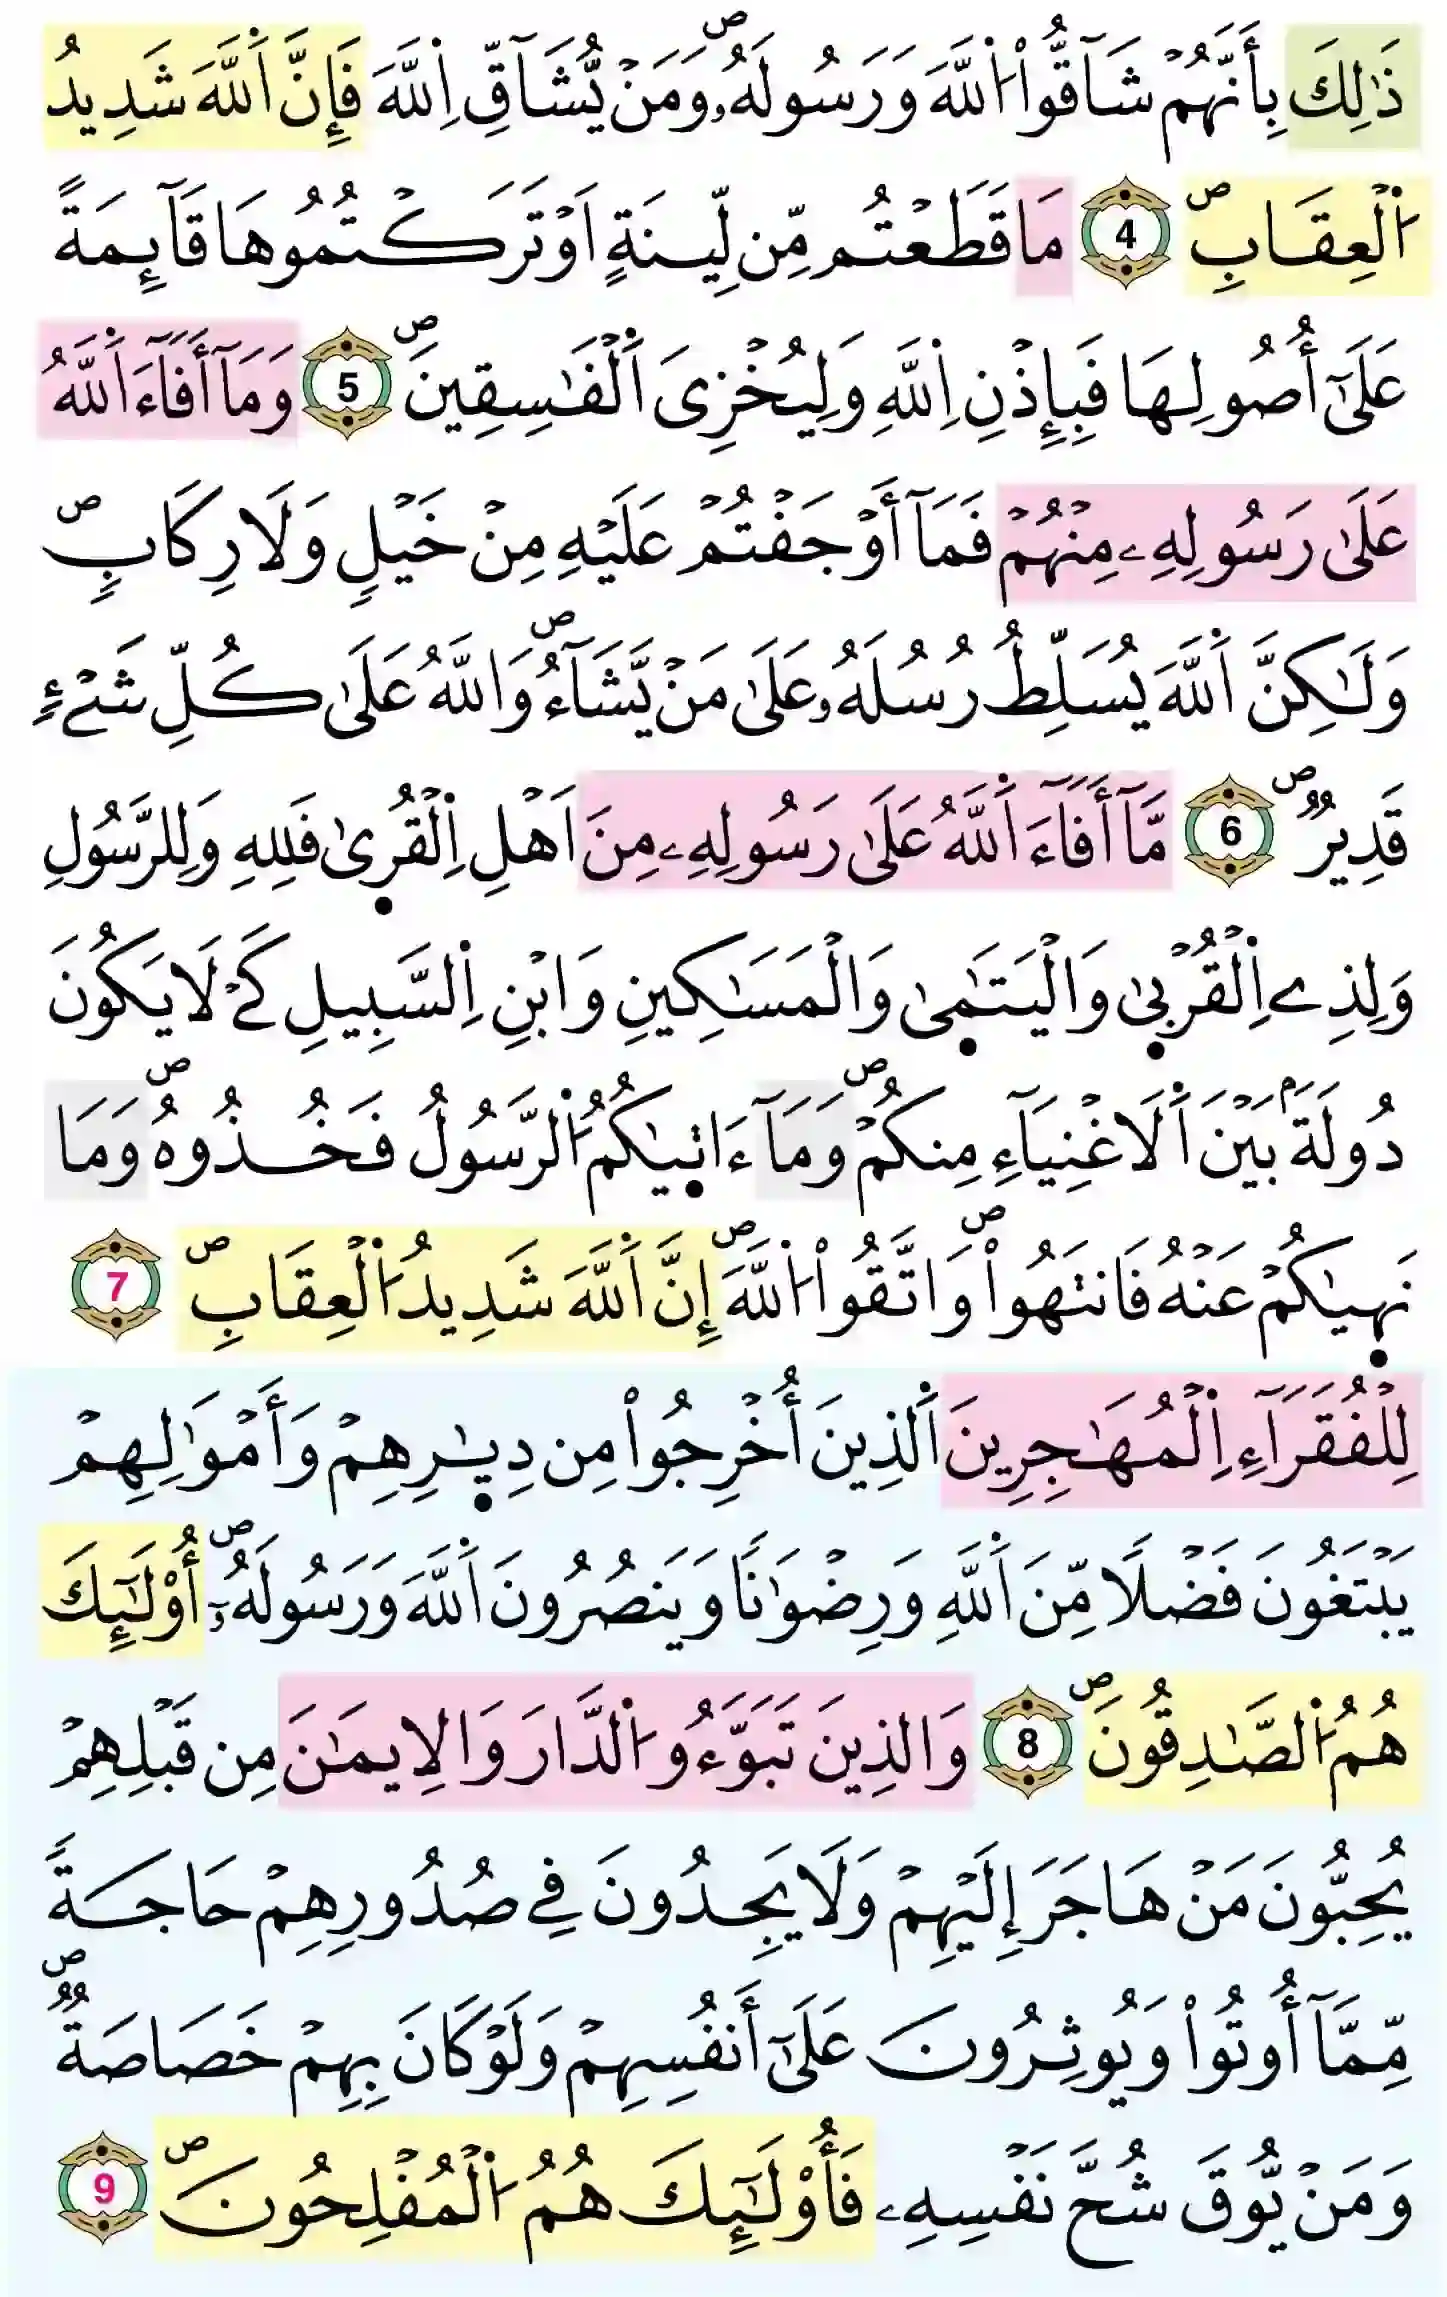 ذَٰلِكَ بِأَنَّهُمْ شَآقُّواْ اُ۬للَّهَ وَرَسُولَهُۥ وَمَنْ يُّشَآقِّ اِ۬للَّهَ فَإِنَّ اَ۬للَّهَ شَدِيدُ
اُ۬لْعِقَابِۖ 4 مَا قَطَعْتُم مِّن لِّينَةٍ اَوْ تَرَكْتُمُوهَا قَآئِمَةً
عَلَىٰٓ أُصُولِهَا فَبِإِذْنِ اِ۬للَّهِ وَلِيُخْزِيَ اَ۬لْفَٰسِقِينَۖ 5 وَمَآ أَفَآءَ اَ۬للَّهُ
عَلَىٰ رَسُولِهِۦ مِنْهُمْ فَمَآ أَوْجَفْتُمْ عَلَيْهِ مِنْ خَيْلٍ وَلَا رِكَابٍۖ
وَلَٰكِنَّ اَ۬للَّهَ يُسَلِّطُ رُسُلَهُۥ عَلَىٰ مَنْ يَّشَآءُۖ وَاللَّهُ عَلَىٰ كُلِّ شَےْءٖ
قَدِيرٌۖ 6 مَّآ أَفَآءَ اَ۬للَّهُ عَلَىٰ رَسُولِهِۦ مِنَ اَهْلِ اِ۬لْقُر۪ىٰ فَلِلهِ وَلِلرَّسُولِ
وَلِذِے اِ۬لْقُرْب۪ىٰ وَالْيَتَٰم۪ىٰ وَالْمَسَٰكِينِ وَابْنِ اِ۬لسَّبِيلِ كَےْ لَا يَكُونَ
دُولَةَۢ بَيْنَ اَ۬لَاغْنِيَآءِ مِنكُمْۖ وَمَآ ءَات۪يٰكُمُ اُ۬لرَّسُولُ فَخُذُوهُۖ وَمَا
نَه۪يٰكُمْ عَنْهُ فَانتَهُواْۖ وَاتَّقُواْ اُ۬للَّهَۖ إِنَّ اَ۬للَّهَ شَدِيدُ اُ۬لْعِقَابِۖ 7
لِلْفُقَرَآءِ اِ۬لْمُهَٰجِرِينَ اَ۬لذِينَ أُخْرِجُواْ مِن دِيٰ۪رِهِمْ وَأَمْوَٰلِهِمْ
يَبْتَغُونَ فَضْلًا مِّنَ اَ۬للَّهِ وَرِضْوَٰنًا وَيَنصُرُونَ اَ۬للَّهَ وَرَسُولَهُۥٓۖ أُوْلَٰٓئِكَ
هُمُ اُ۬لصَّٰدِقُونَۖ 8 وَالذِينَ تَبَوَّءُو اُ۬لدَّارَ وَالِايمَٰنَ مِن قَبْلِهِمْ
يُحِبُّونَ مَنْ هَاجَرَ إِلَيْهِمْ وَلَا يَجِدُونَ فِي صُدُورِهِمْ حَاجَةً
مِّمَّآ أُوتُواْ وَيُوثِرُونَ عَلَىٰٓ أَنفُسِهِمْ وَلَوْ كَانَ بِهِمْ خَصَاصَةٌۖ
وَمَنْ يُّوقَ شُحَّ نَفْسِهِۦ فَأُوْلَٰٓئِكَ هُمُ اُ۬لْمُفْلِحُونَۖ 9